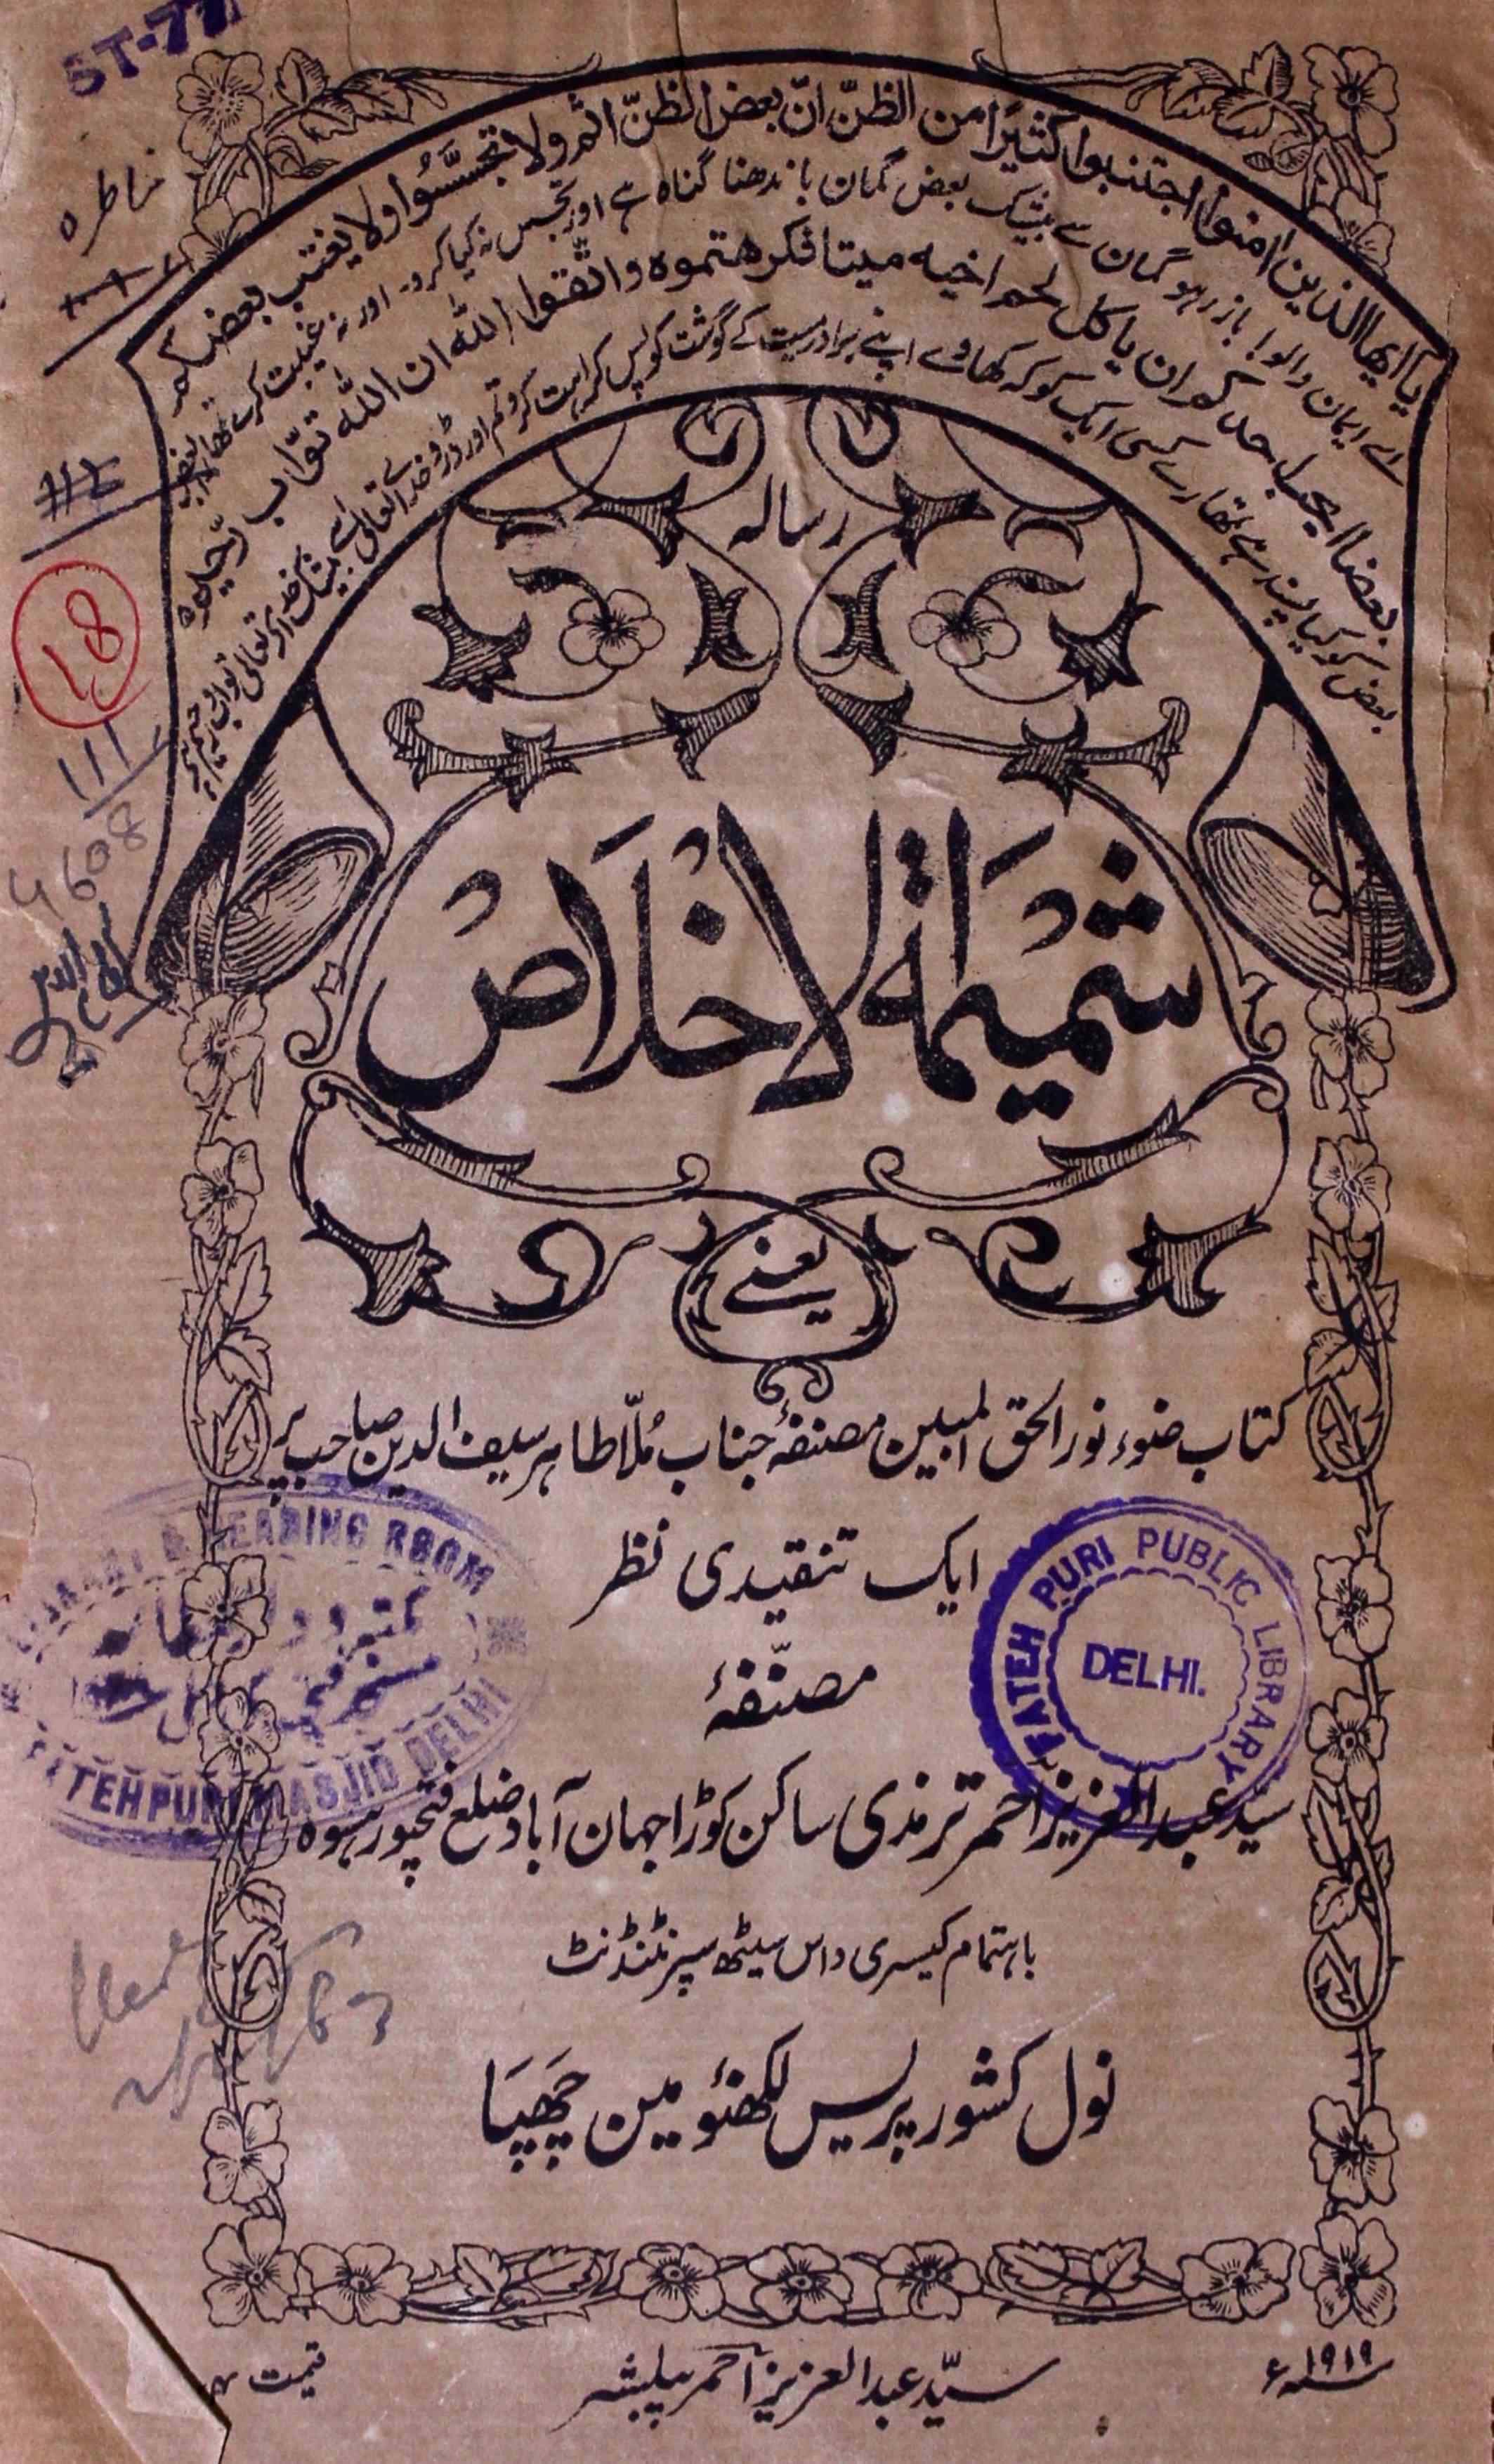 ST-77
ناظرہ
یا ایھا الذین امنوا اجتنبوا کثیرًا من الظنّ انّ بعض الظنّ اثم ولا تجسّسُوا ولا یغتب بعضکم
اے ایمان والو! باز رہو گمان سے بیشک بعض گمان باندھنا گناہ ہے اور تجسس نہ کیا کرو۔ اور نہ غیبت کرے تمھارا بعض
بعضا ایحب احدکم ان یاکل لحم اخیہ میتا فکرھتموہ واتّقوا اللہ ان اللہ توّاب رّحیم
بعض کو کیا پسند ہے تمھارے کسی ایک کو کہ کھاوے اپنے برادر میت کے گوشت کو پس کراہت کرو تم اور ڈرو خداے تعالیٰ سے بیشک خداے تعالیٰ تواب رحیم ہے
18
111
4608
رسالہ
شمیمۃ الاخلاص
یعنے
کتاب ضوء نور الحق المبین مصنفۂ جناب مُلّا طاہر سیف الدین صاحب پر
ایک تنقیدی نظر
مصنّفۂ
سید عبد العزیز احمر ترمذی ساکن کوڑا جہان آباد ضلع فتحپور ہسوہ
باہتمام کیسری داس سیٹھ سپرنٹنڈنٹ
نول کشور پریس لکھنؤ مین چھپا
FATEH PURI PUBLIC LIBRARY
DELHI.
READING ROOM
FATEHPURI MASJID DELHI
۱۹۱۹ء
سیّد عبد العزیز احمر پبلیشر
قیمت